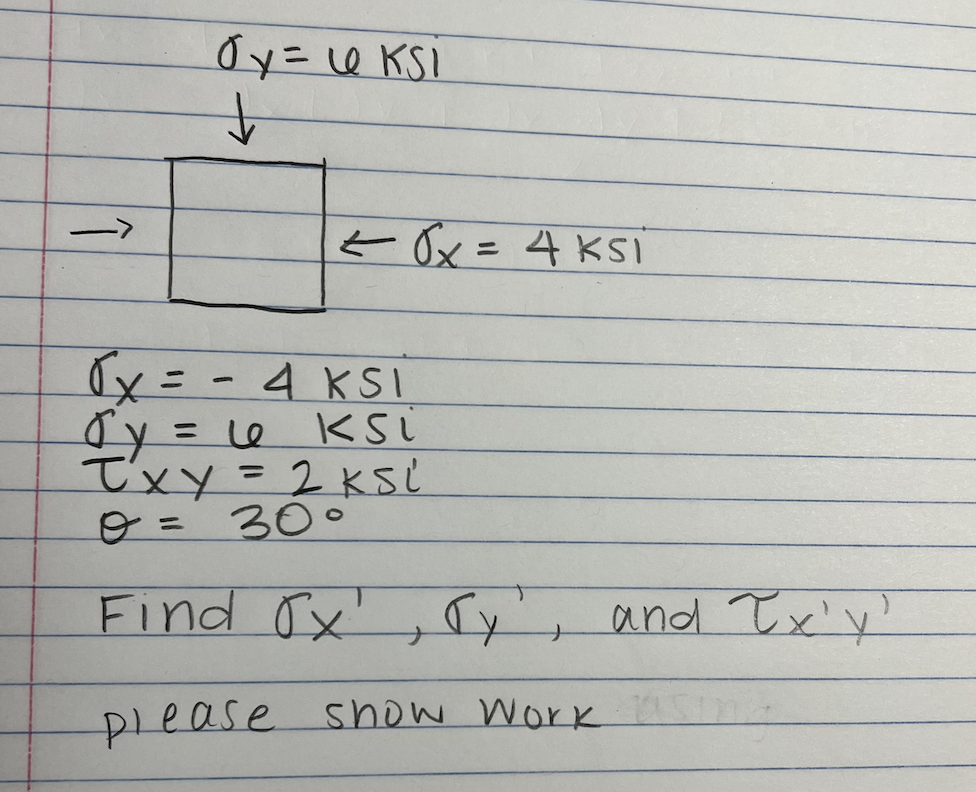 σy = 6 ksi
← σx = 4 ksi
σx = - 4 ksi
σy = 6 ksi
τxy = 2 ksi
θ = 30°
Find σx', σy', and τx'y'
please show work using